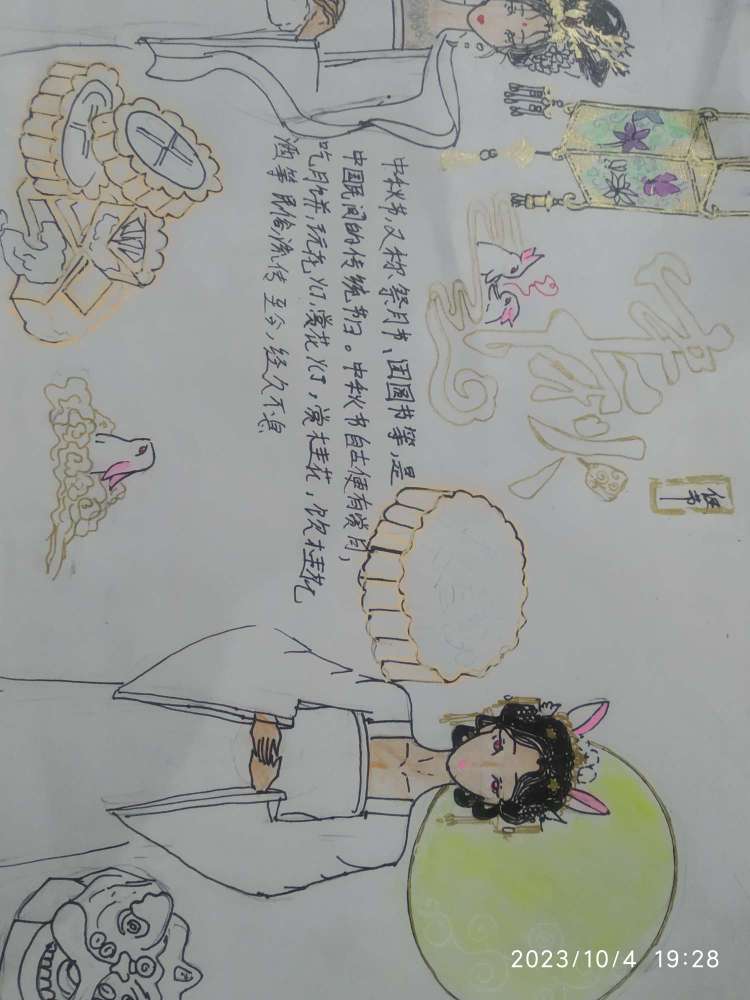 中秋
佳节
中秋节,又称祭月节、团圆节等,是
中国民间的传统节日。中秋节自古便有赏月,
吃月饼,玩花灯,赏花灯,赏桂花,饮桂花
酒等民俗流传至今,经久不息
2023/10/4 19:28